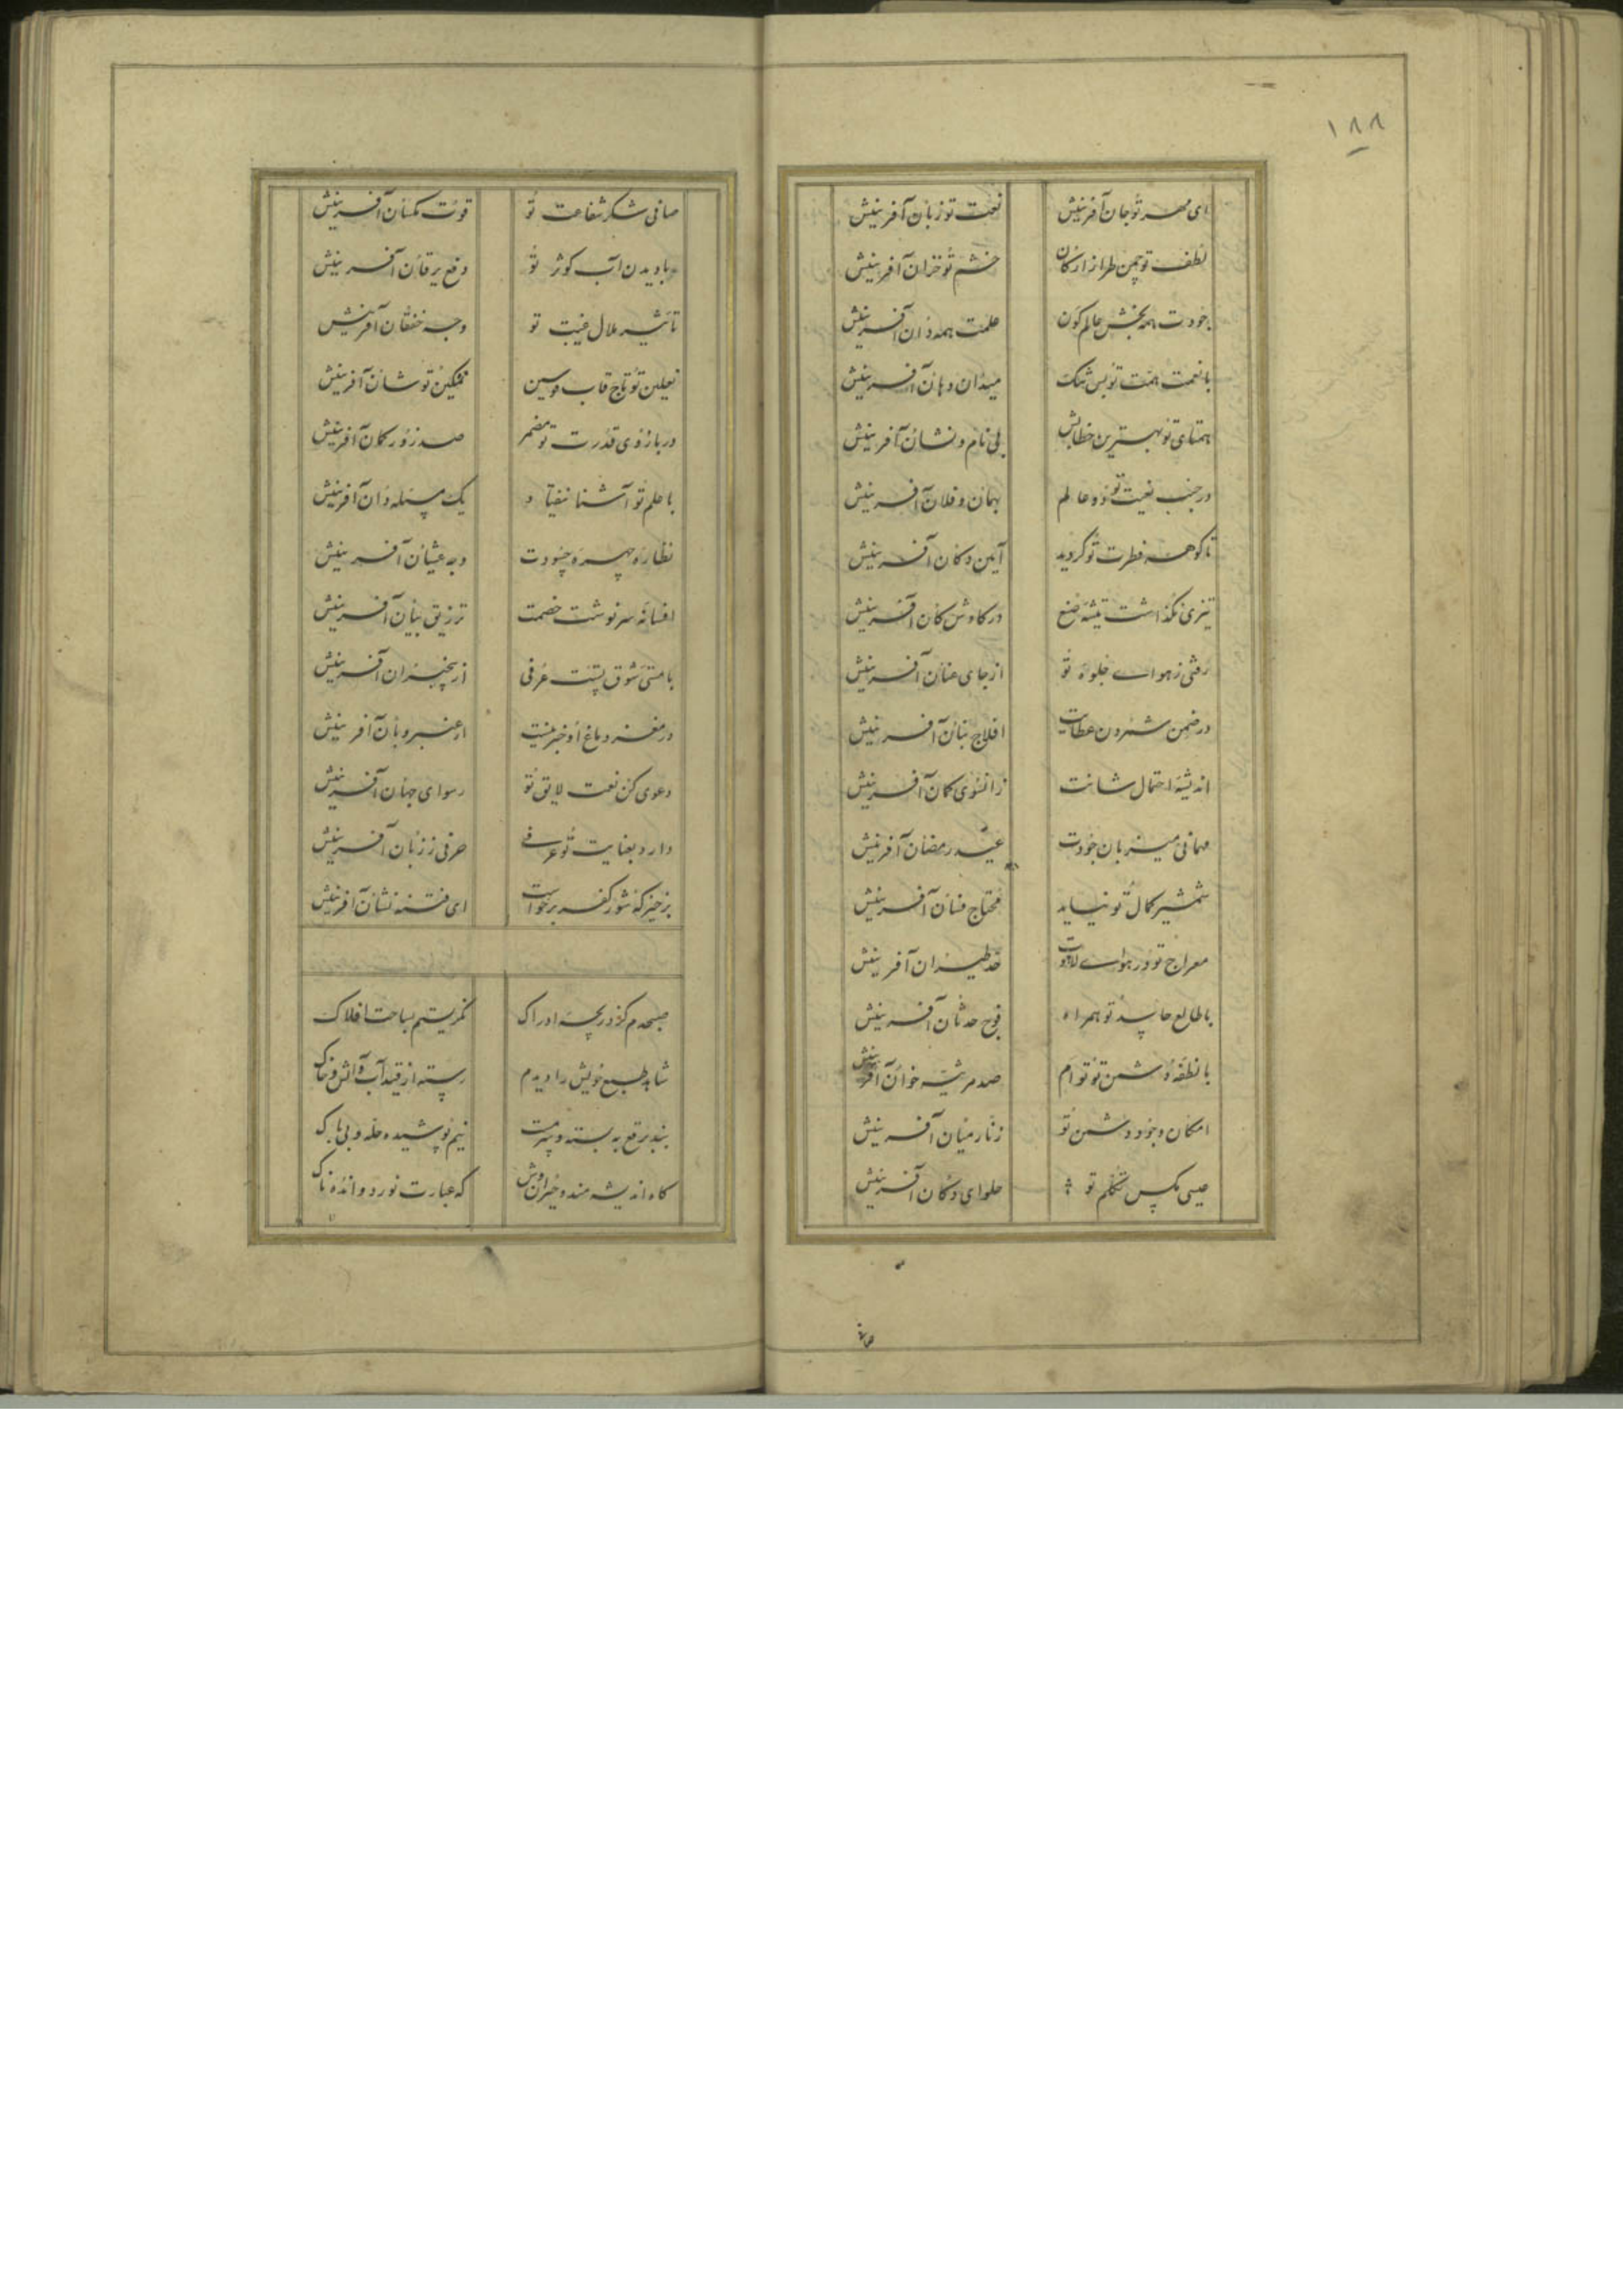 ۱۸۸
ای مهر تو جان آفرینش نعت تو زبان آفرینش
لطف تو چمن طراز ارکان خشم تو خزان آفرینش
جودت همه بخش عالم کون علمت همه دان آفرینش
با نعمت همت تو بس تنک میدان دهان آفرینش
همتای تو بهترین خطابش بی نام و نشان آفرینش
در جنب نعت تو دو عالم بهمان و فلان آفرینش
تا گوهر فطرت تو گردید آیین دکان آفرینش
تیزی نگذاشت تیشه صنع در کاوش کان آفرینش
رفتی ز هوای جلوه تو از جای عنان آفرینش
در ضمن شمردن عطایت افلاج بنان آفرینش
اندیشه احتمال شانت زانسوی کمان آفرینش
مهمانی میزبان جودت عید رمضان آفرینش
شمشیر کمال تو نیاید محتاج فسان آفرینش
معراج تو در هوای لاهوت حد طیران آفرینش
با طالع حاسد تو همراه فوج حدثان آفرینش
با نطفه دشمن تو توام صد مرثیه خوان آفرینش
امکان وجود دشمن تو زنار میان آفرینش
عیسی مکس تکلم تو حلوای دکان آفرینش
صافی
صافی شکر شفاعت تو قوت مکسان آفرینش
با دیدن آب کوثر تو دفع یرقان آفرینش
تاثیر ملال غیبت تو وجه خفقان آفرینش
نعلین تو تاج قاب قوسین تمکین تو شان آفرینش
در بازوی قدرت تو مضمر صد زور کمان آفرینش
با علم تو آشنا نیفتاد یک مسئله دان آفرینش
نظاره چهره حسودت وجه غثیان آفرینش
افسانه سرنوشت خصمت تزریق بیان آفرینش
با مستی شوق تست عرفی از بیخبران آفرینش
در مغز دماغ او خبر نیست از عنبر و بان آفرینش
دعوی کن نعت لایق تو رسوای جهان آفرینش
دارد بعنایت تو عرفی حرفی ز زبان آفرینش
برخیز که شور کفر برخواست ای فتنه نشان آفرینش
صبحدم کز دریچه ادراک نگریستم بساحت افلاک
شاهد طبع خویش را دیدم رسته از قید آب و آتش و خاک
بند برقع به بسته و سرمست نیم پوشیده حله و بی باک
گاه اندیشه مند و حیران وش گه عبارت نورد و اندهناک